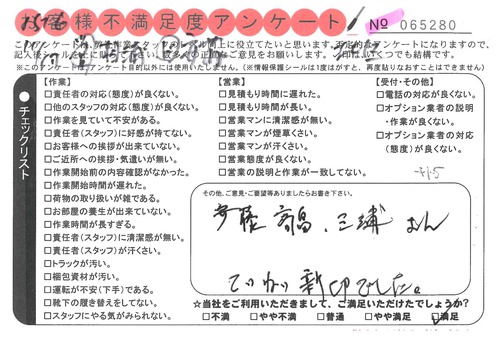 お客様不満足度アンケート
No 065280
このアンケートは、
スタッフの
向上に役立てたいと思います。否定的なアンケートになりますので、
記入後シールを
ご意見をお願いします。
印はいくつでも結構です。
※このアンケートは
アンケート目的以外には使用いたしません。(※情報保護シールは1度はがすと、再度貼りなおすことはできません)
チェックリスト
【作業】
□責任者の対応(態度)が良くない。
□他のスタッフの対応(態度)が良くない。
□作業を見ていて不安がある。
□責任者(スタッフ)に好感が持てない。
□お客様への挨拶が出来ていない。
□ご近所への挨拶・気遣いが無い。
□作業開始前の内容確認がなかった。
□作業開始時間が遅れた。
□荷物の取り扱いが雑である。
□お部屋の養生が出来ていない。
□作業時間が長すぎる。
□責任者(スタッフ)に清潔感が無い。
□責任者(スタッフ)が汗くさい。
□トラックが汚い。
□梱包資材が汚い。
□運転が安市(下手)である。
□靴下の履き替えをしてない。
□スタッフにやる気がみられない。
【営業】
□見積もり時間に遅れた。
□見積もり時間が長い。
□営業マンに清潔感が無い。
□営業マンが煙草くさい。
□営業マンが汗くさい。
□営業態度が良くない。
□営業の説明と作業が一致してない。
【受付・その他】
□電話の対応が良くない。
□オプション業者の説明
・作業が良くない。
□オプション業者の対応
(態度)が良くない。
その他、ご意見・ご要望等ありましたらお書き下さい。
斉藤 高島、三浦 さん
でっかい 新印でした。
☆当社をご利用いただきまして、ご満足いただけたでしょうか?
□不満 □やや不満 □普通 □やや満足 □満足